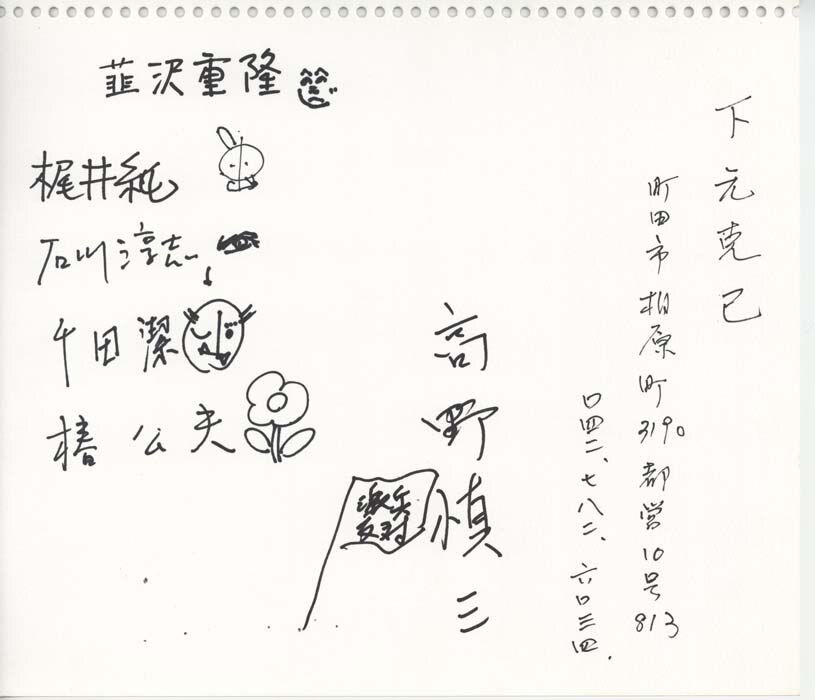 韮沢重隆
梶井純
石川淳志
千田潔
椿公夫
高野慎三
派兵
反対
下元克己
町田市相原町3190都営10号813
〇四二、七八二、六〇三四.